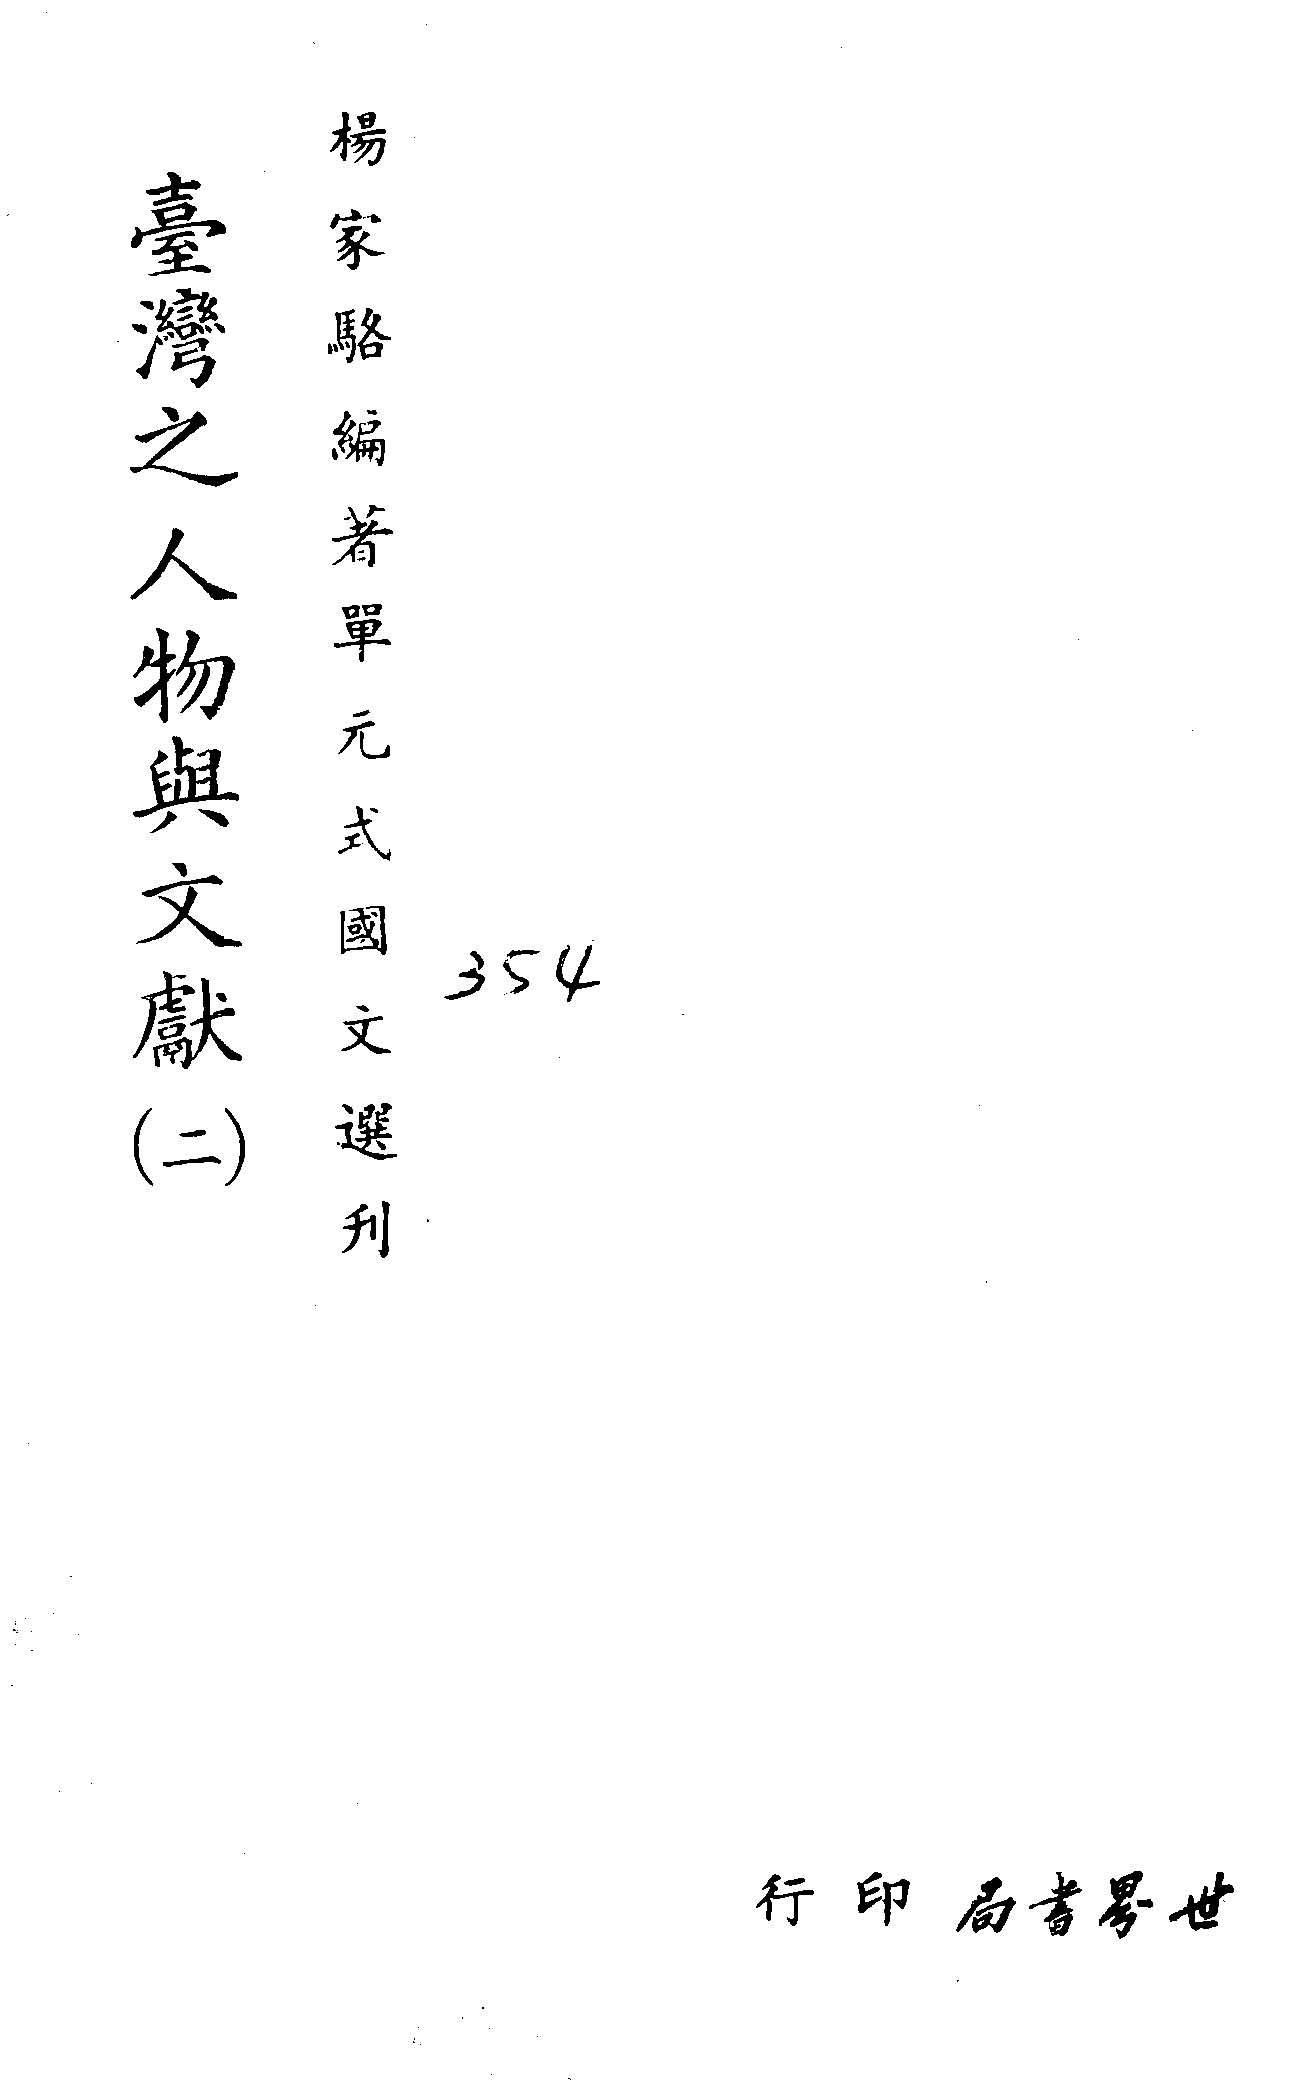 楊家駱編著單元式國文選刊
臺灣之人物與文獻(二)
354
世界書局印行